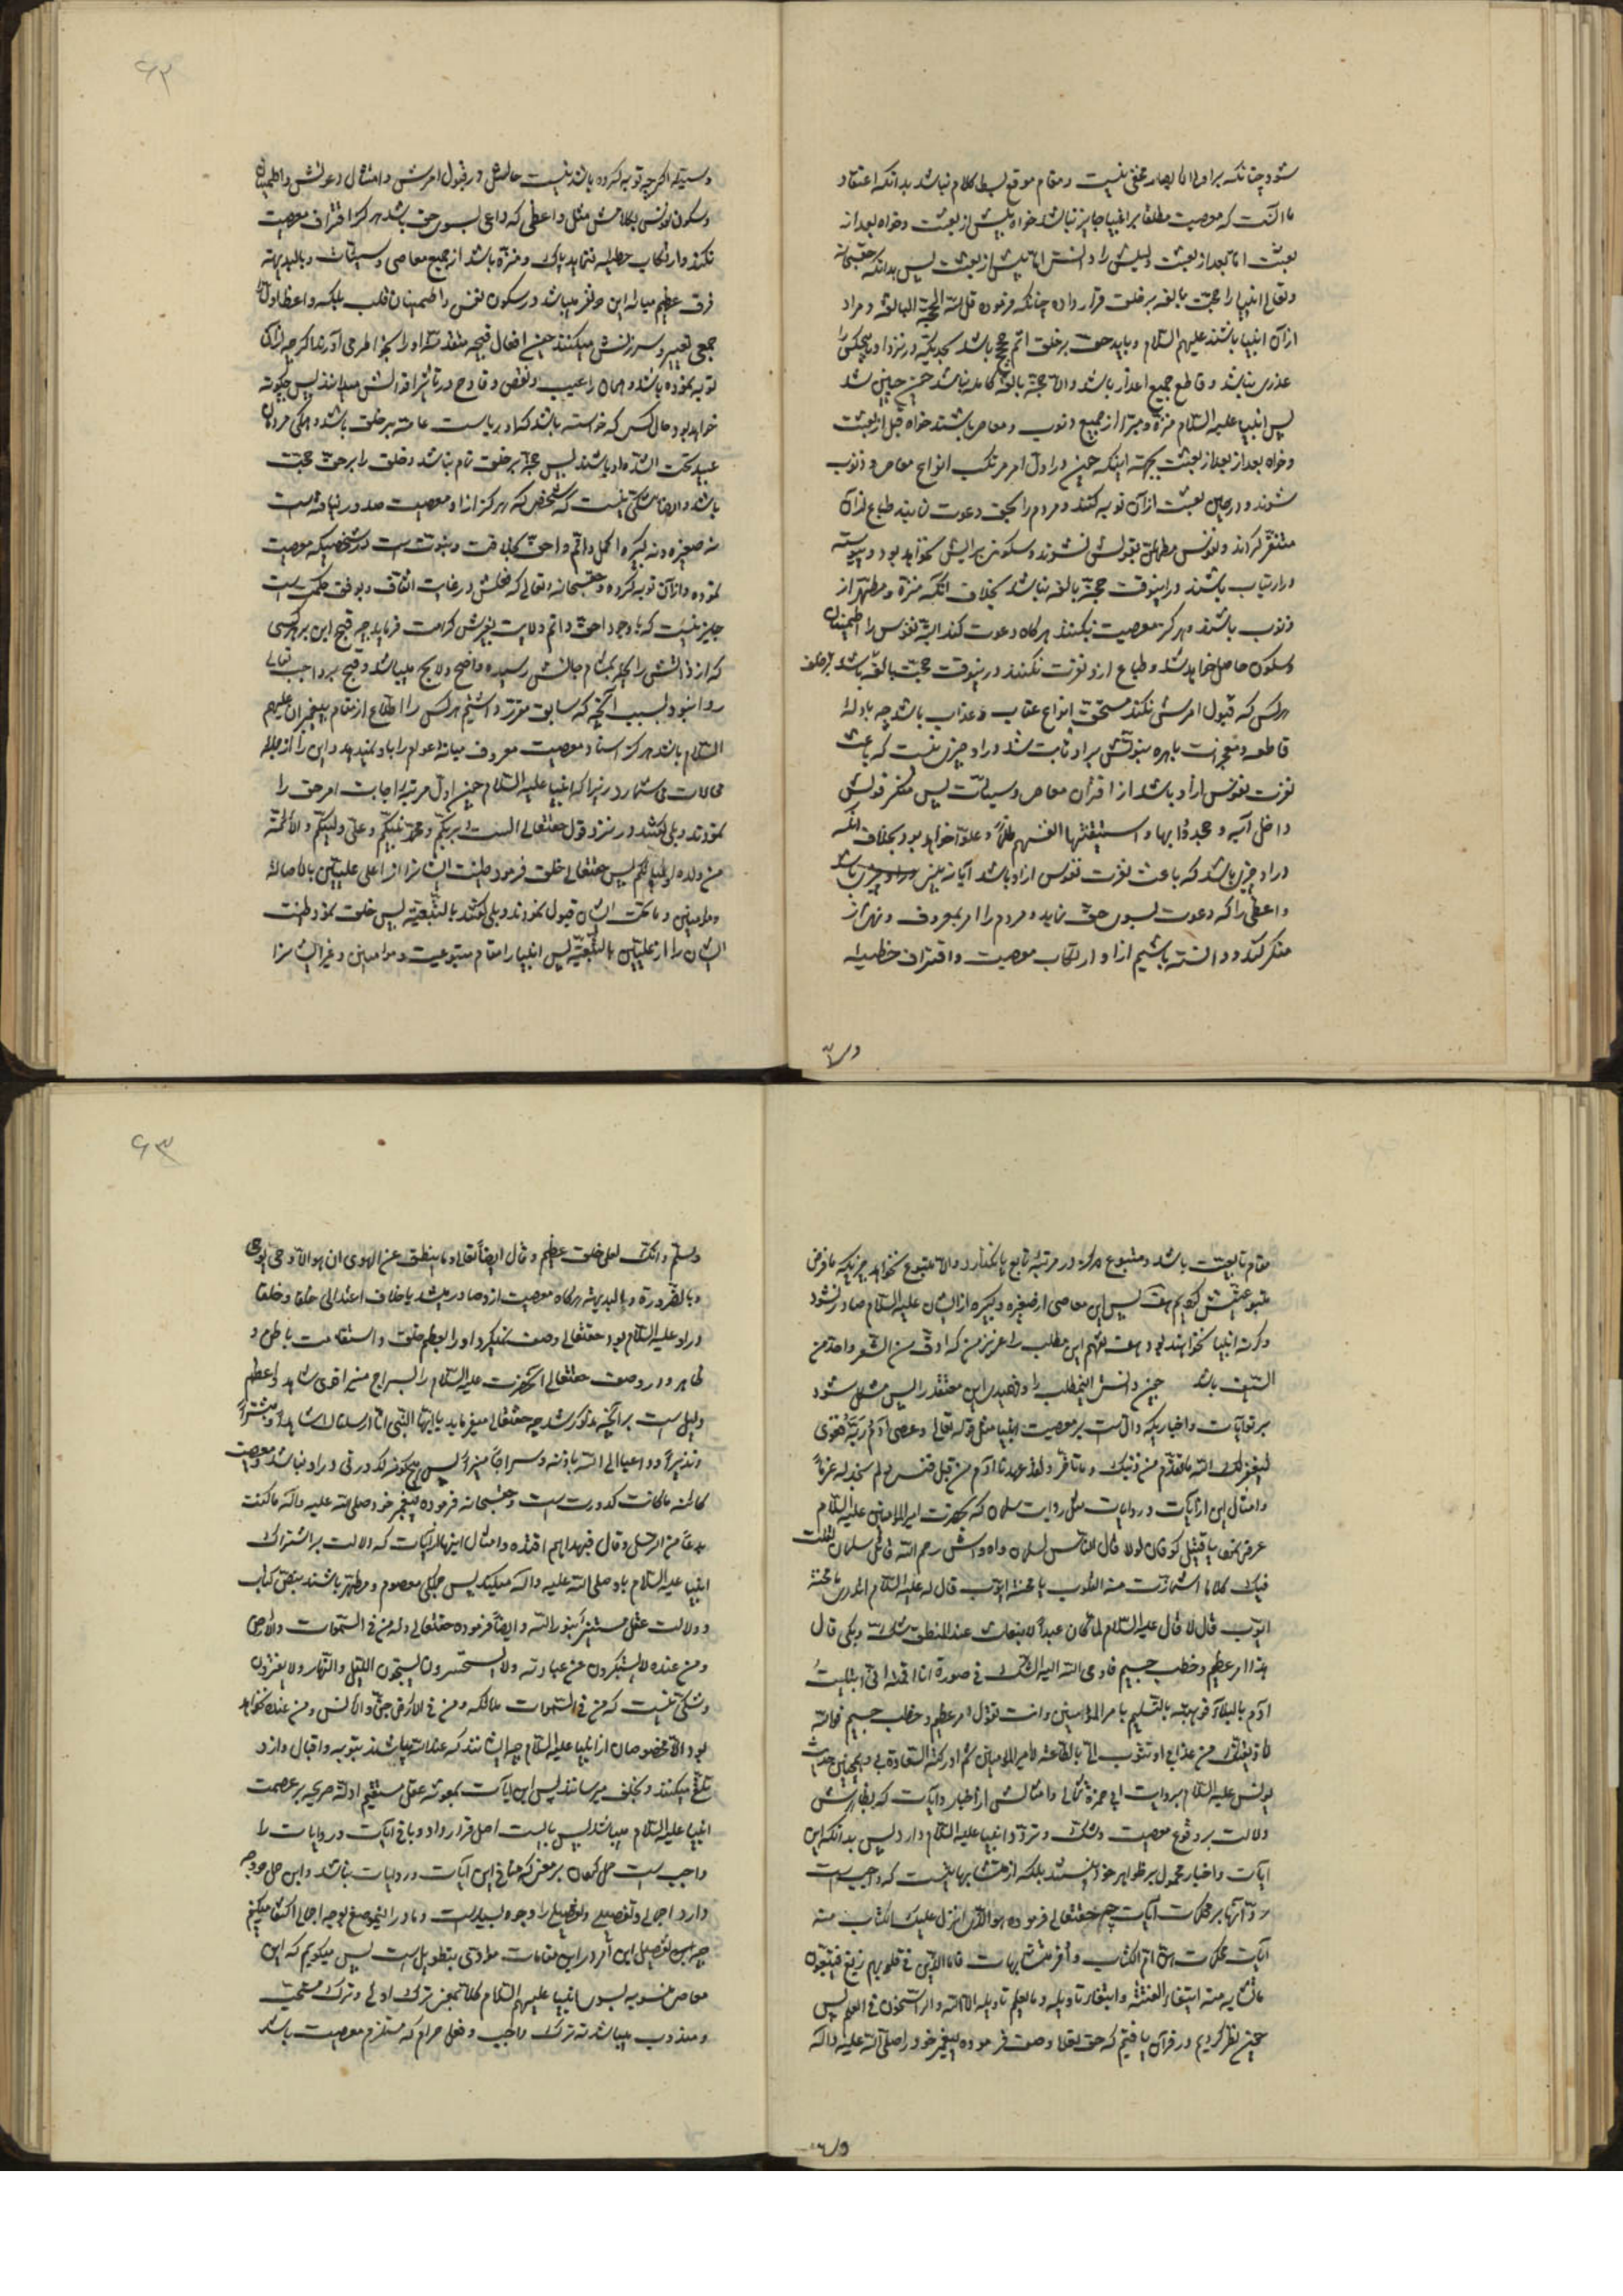 شود چنانکه بر اولی الابصار مخفی نیست و مقام موقع بسط کلام نباشد بدانکه اعتقاد
ما آنست که معصیت مطلقا بر انبیا جایز نباشد خواه پیش از بعثت و خواه بعد از
بعثت اما بعد از بعثت دلیلش را دانستی اما پیش از بعثت پس بدانکه حقسبحانه
وتعالی انبیا را حجت بالغه بر خلق قرار داده چنانکه فرموده قل لله الحجة البالغة و مراد
از آن انبیا باشند علیهم السلام و باید حجت بر خلق اتم حجج باشد بحدیکه در نزد او هیچکس را
عذری نباشد و قاطع جمیع اعذار باشد والا حجة بالغة کامله نباشد چون چنین شد
پس انبیا علیه السلام منزه و مبرا از جمیع ذنوب و معاصی باشند خواه قبل از بعثت
و خواه بعد از بعد از بعثت بجهة اینکه چون در اول امر مرتکب انواع معاصی و ذنوب
شوند و در حین بعثت از آن توبه کنند و مردم را بحق دعوت نمایند طباع از آن
متنفر گردند و نفوس مطمئن بقولش نشوند و سکون برایش نخواهد بود و پیوسته
در ارتیاب باشند در اینوقت حجة بالغه نباشد بخلاف آنکه منزه و مطهر از
ذنوب باشند و هرگز معصیت نکنند هرگاه دعوت کند البته نفوس را اطمینان
و سکون حاصل خواهد شد و طباع از او نفرت نکنند در اینوقت حجت بالغه باشد بر خلق
هر کس که قبول امرش نکند مستحق انواع عقاب و عذاب باشد چه بادله
قاطعه و معجزات باهره نبوتش بر او ثابت شد و در او چیزی نیست که باعث
نفرت نفوس از او باشد از اقتران معاصی و سیئات پس منکر قولش
داخل آیه و جحدوا بها و استیقنتها انفسهم ظلما و علوا خواهد بود بخلاف آنکه
در او چیزی باشد که باعث نفرت نفوس از او باشد آیا نه بینی
واعظی را که دعوت بسوی حق نماید و مردم را امر بمعروف و نهی از
منکر کند و دانسته باشیم از او ارتکاب معصیت و اقتراف خطیئه
۶۲
و سیئه اگر چه توبه کرده باشد نیست حالش در قبول امرش و امتثال دعوتش و اطمینان
و سکون نفوس بکلامش مثل واعظی که داعی بسوی حق باشد هرگز اقتراف معصیت
نکند و ارتکاب خطیئه ننماید پاک و منزه باشد از جمیع معاصی و سیئات و بالبدیهة
فرق عظیم میانه این دو نفر میباشد در سکون نفس و اطمینان قلب بلکه واعظ اول را
جمعی تعییر و سرزنش میکنند چون افعال قبیحه متقدمه او را بخاطر می آورند اگر چه از آن
توبه نموده باشد و همان را عیب و نقص و قادح در تأثیر اقوالش میدانند پس چگونه
خواهد بود حال کسی که خواسته باشد که او ریاست عامه بر خلق باشد و همگی مردمان
عبید تحت او باشند پس حجة بر خلق تام نباشد و خلق را بر حق حجت
باشد و ایضا شکی نیست که شخصی که هرگز از او معصیت صدور نیافته است
نه صغیره و نه کبیره اکمل و اتم و احق بخلافت و نبوتست از شخصیکه معصیت
نموده و از آن توبه کرده و حقسبحانه وتعالی که فعلش در غایت اتقان و بوفق حکمتست
جایز نیست که با وجود احق و اتم ولایت بغیرش کرامت فرماید چه قبح این بر هر کسی
که از دانشی رایحه بمشام جانش رسیده واضح و لایح میباشد و قبیح بر واجب تعالی
روا نبود بسبب آنچه که سابق مقرر داشتیم هر کس را اطلاع از مقام پیغمبران علیهم
السلام باشد هرگز اسناد معصیت معروف میانه عوام را باو نمیدهد و این را از جمله
محالات می شمارد زیرا که انبیا علیه السلام چون اول مرتبه اجابت امر حق را
نمودند و بلی گفتند در نزد قول حقتعالی الست بربکم و محمد نبیکم و علی ولیکم والائمة
من ولده اولیائکم پس حقتعالی خلق فرمود طینت ایشانرا از اعلی علیین بالاصالة
و مؤمنین و ما تحت ایشان قبول نمودند و بلی گفتند بالتبعیة پس خلق نمود طینت
ایشان را از علیین بالتبعیة پس انبیا را مقام متبوعیت و مؤمنین و غیر ایشانرا
مقام تابعیت باشد و متبوع هرگز در مرتبه تابع پا نگذارد والا متبوع نخواهد چیزیکه ما فرض
متبوعیتش کردیم هف پس این معاصی از صغیره و کبیره از ایشان علیه السلام صادر نشود
وگرنه انبیا نخواهند بود هف بفهم این مطلب را عزیز من که ادق من الشعر و احد من
السیف باشد چون دانستی اینمطلب را و فهمیدی این معتقد را پس مشکل شود
بر تو آیات و اخباریکه دالست بر معصیت انبیا مثل قوله تعالی و عصی آدم ربه فغوی
لیغفر لک الله ما تقدم من ذنبک و ما تأخر و لقد عهدنا الی آدم من قبل فنسی و لم نجد له عزما
و امثال این از آیات و روایات مثل روایت سلمان که بحضرت امیر المؤمنین علیه السلام
عرض نمود یا قتیل کوفان لولا قال الناس لسلمان واه واش رحم الله قاتل سلمان لقلت
فیک کلاما اشمأزت منه القلوب یا محنة ایوب قال له علیه السلام اتدری ما محنة
ایوب قال لا قال علیه السلام لما کان عند الانبعاث عند المنطق شک و بکی قال
هذا امر عظیم و خطب جسیم فاوحی الله الیه اتشک فی صورة انا اقمته انی ابتلیت
آدم بالبلاء فوهبته بالتسلیم بامرة المؤمنین وانت تقول امر عظیم و خطب جسیم فوالله
لاذیقنک من عذابی او تتوب الی بالطاعة لامیر المؤمنین ثم ادرکته السعادة بی و همچنین حدیث
یونس علیه السلام بروایت ابی حمزة ثمالی و امثالش از اخبار و آیات که بظاهرش
دلالت بر وقوع معصیت و شک و تردد انبیا علیه السلام دارد پس بدانکه این
آیات و اخبار محمول بر ظواهر خود نیستند بلکه از متشابهاتست که واجبست
رد آنها بر محکمات آیات چه حقتعالی فرموده هو الذی انزل علیک الکتاب منه
آیات محکمات هن ام الکتاب و اخر متشابهات فاما الذین فی قلوبهم زیغ فیتبعون
ما تشابه منه ابتغاء الفتنة وابتغاء تأویله وما یعلم تأویله الا الله والراسخون فی العلم پس
چون نظر کردیم در قرآن یافتیم که حق تعالی وصف فرموده پیغمبر خود را صلی الله علیه وآله
۶۳
وسلم و انک لعلی خلق عظیم و قال ایضا تعالی و ما ینطق عن الهوی ان هو الا وحی یوحی
و بالضرورة و بالبدیهة هرگاه معصیت از او صادر میشد یا خلاف اعتدالی خلقا و خلقا
در او علیه السلام بود حقتعالی وصف نمیکرد او را بعظم خلق و استقامت باطن و
ظاهر و در وصف حقتعالی آنحضرت علیه السلام را بسراج منیر اقوی شاهد و اعظم
دلیل است بر آنچه مذکور شد چه حقتعالی میفرماید یا ایها النبی انا ارسلناک شاهدا و مبشرا
و نذیرا و داعیا الی الله باذنه و سراجا منیرا پس هیچگونه کدورتی در او نباشد و معصیت
کائنة ما کانت کدورتست و حقسبحانه فرموده پیغمبر خود صلی الله علیه وآله ما کنت
بدعا من الرسل و قال فبهداهم اقتده و امثال اینها از آیات که دلالت بر اشتراک
انبیا علیه السلام باو صلی الله علیه وآله میکنند پس همگی معصوم و مطهر باشند بنص کتاب
و دلالت عقل مستنیر بنور الله و ایضا فرموده حقتعالی وله من فی السموات والارض
ومن عنده لا یستکبرون عن عبادته ولا یستحسرون یسبحون اللیل والنهار لا یفترون
و شکی نیست که من فی السموات ملائکه و من فی الارض جن و انس و من عنده نخواهد
بود الا مخصوصان از انبیا علیه السلام چه ایشانند که عند الله میباشند بتوبه و اقبال و از او
تلقی میکنند و بخلق میرسانند پس این آیات بمعونه عقل مستقیم ادله صریحه بر عصمت
انبیا علیه السلام میباشد پس بایست اصل قرار داد و باقی آیات و روایات را
واجب است حمل کردن بر معنی که منافی این آیات و روایات نباشد و این حمل وجوه
دارد اجمالی و تفصیلی و تفصیلی را وجوه بسیار است و ما در اینموضع بوجه اجمالی اکتفا میکنیم
چه تفصیل این امر در این مقامات مؤدی بتطویل است پس میگویم که این
معاصی منسوبه بسوی انبیا علیهم السلام کلا بمعنی ترک اولی و ترک مستحب
و مندوب میباشد نه ترک واجب و فعل حرام که مستلزم معصیت باشد